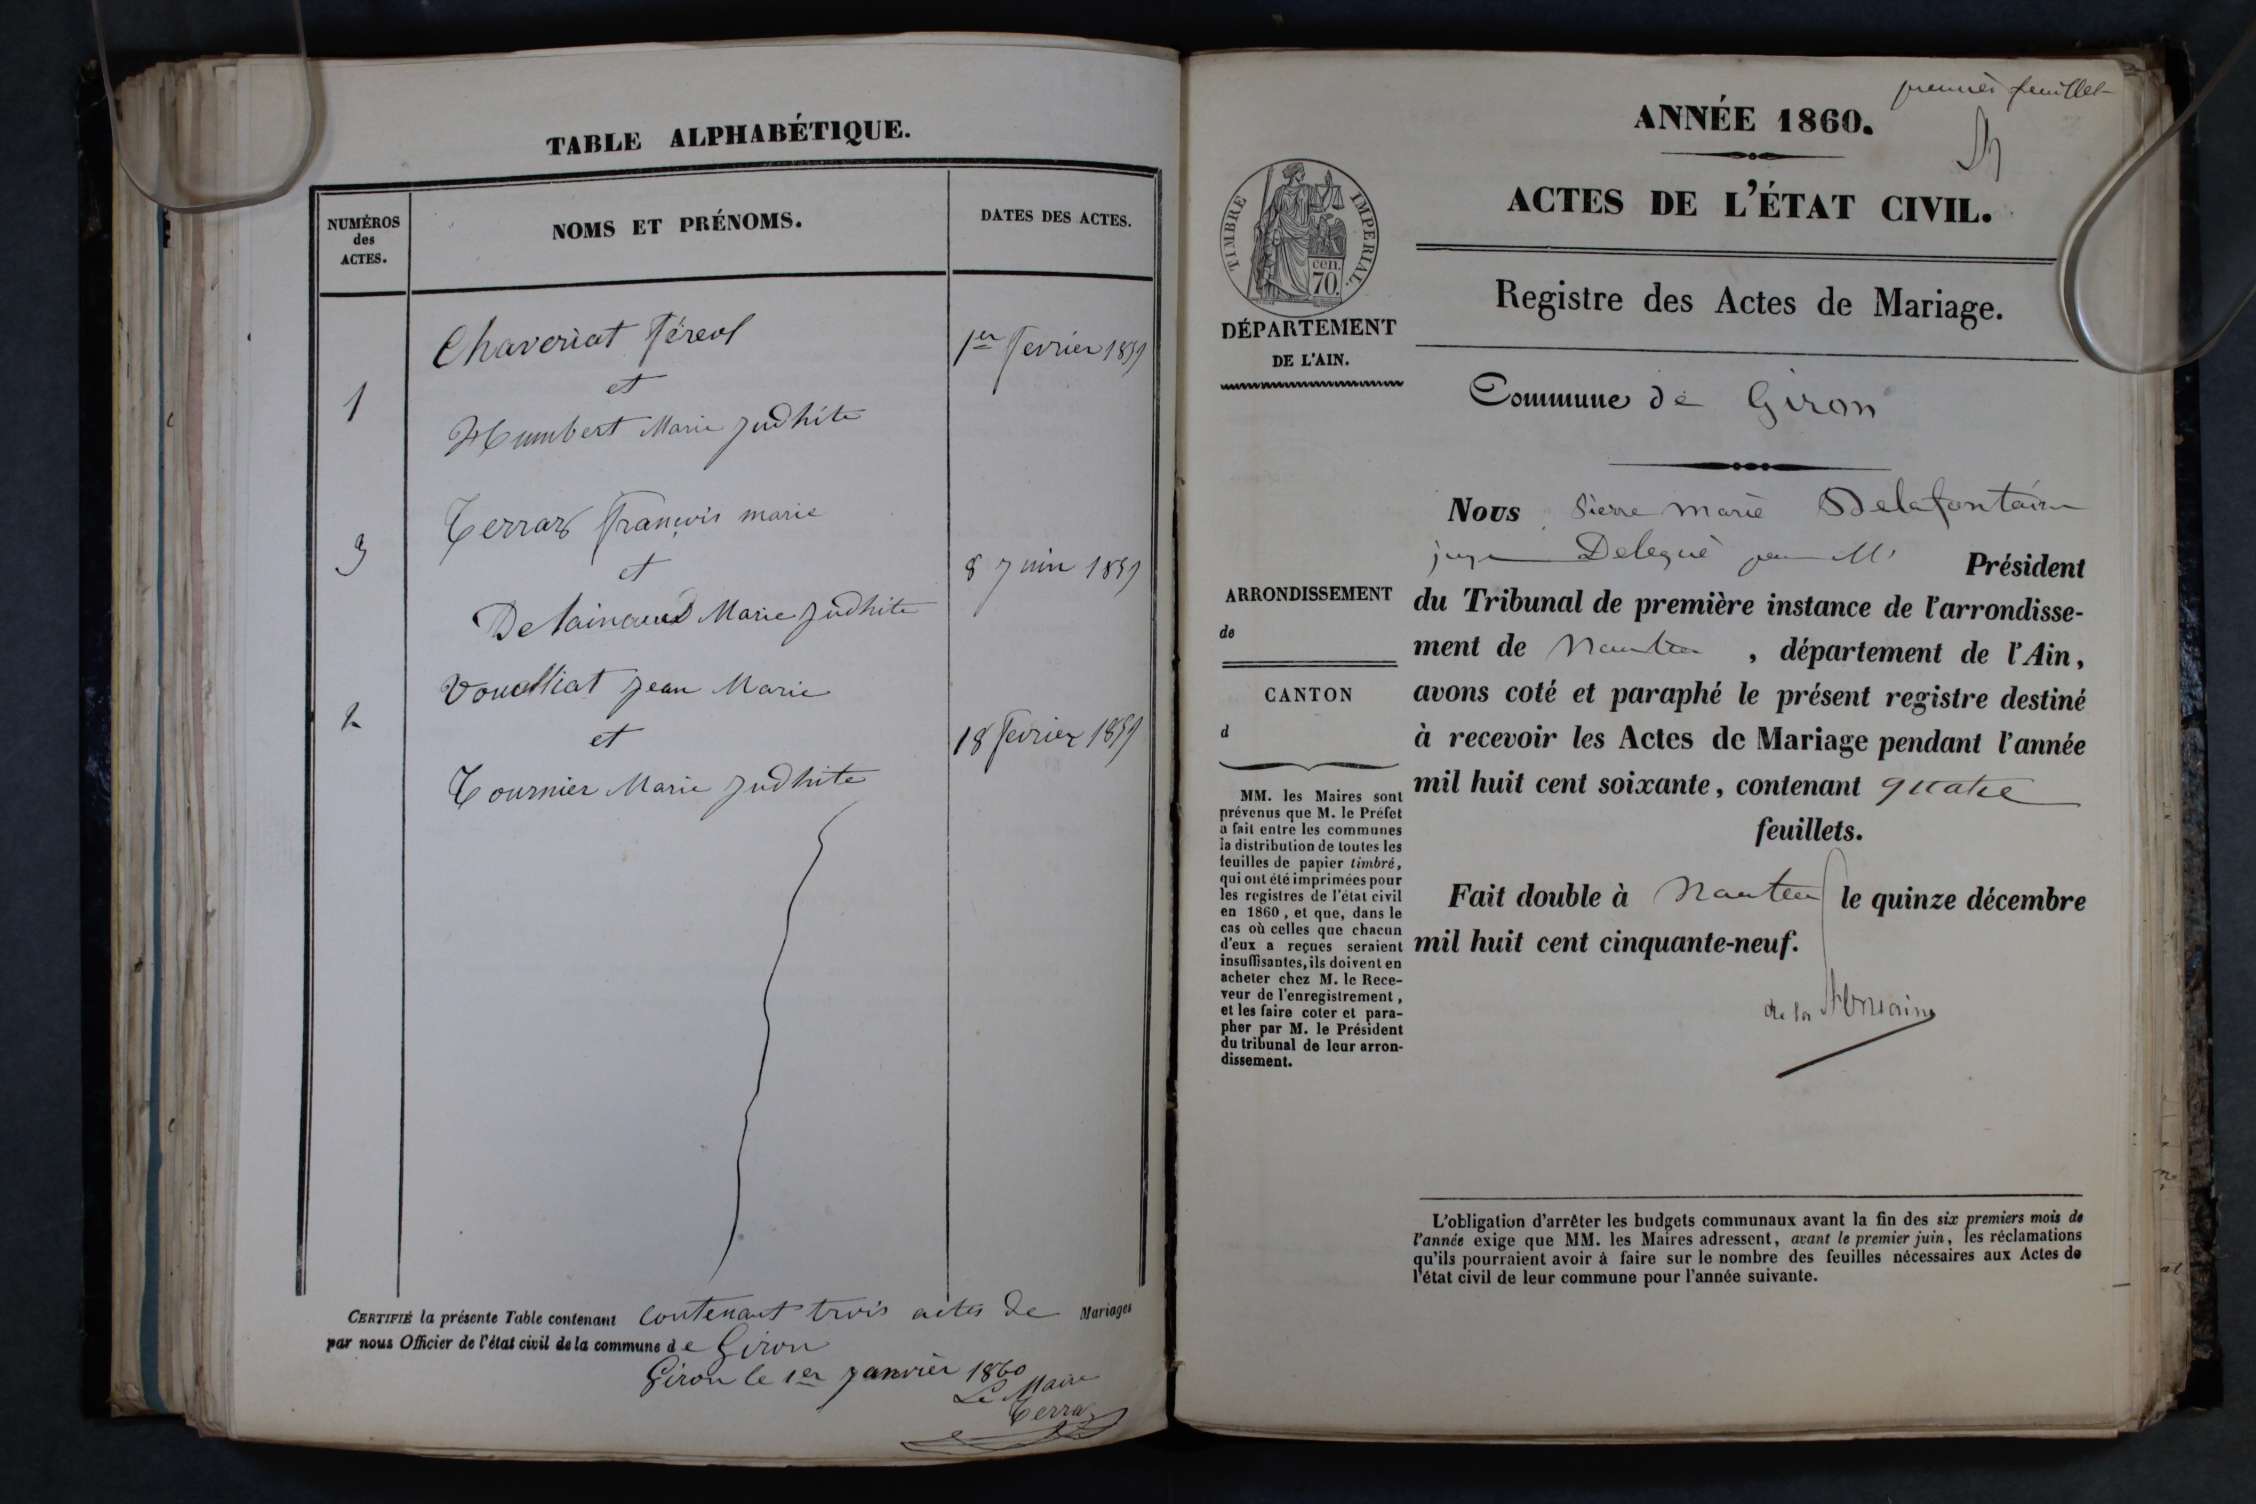 TABLE ALPHABÉTIQUE.
NUMÉROS
des
ACTES.
NOMS ET PRÉNOMS.
DATES DES ACTES.
Chaveriat féreol
1er fevrier 1859
1
et
Humbert Marie Judhite
Terraz françois marie
3
et
8 Juin 1859
Marie Judhite
Vouailliat Jean Marie
2
et
18 fevrier 1859
Tournier Marie Judhite
CERTIFIÉ la présente Table contenant contenant trois actes de Mariages
par nous Officier de l'état civil de la commune de Giron
Giron le 1er Janvier 1860
Le Maire
Terraz
premier feuillet
ANNÉE 1860.
ACTES DE L'ÉTAT CIVIL.
TIMBRE IMPERIAL.
cen.
70.
DÉPARTEMENT
DE L'AIN.
Registre des Actes de Mariage.
Commune de Giron
Nous Pierre Marie Delafontaine
juge Delegué par Mr Président
du Tribunal de première instance de l'arrondisse-
ment de Nantua, département de l'Ain,
avons coté et paraphé le présent registre destiné
à recevoir les Actes de Mariage pendant l'année
mil huit cent soixante, contenant quatre
feuillets.
Fait double à Nantua le quinze décembre
mil huit cent cinquante-neuf.
de la fontaine
ARRONDISSEMENT
de
CANTON
d
MM. les Maires sont
prévenus que M. le Préfet
a fait entre les communes
la distribution de toutes les
feuilles de papier timbré,
qui ont été imprimées pour
les registres de l'état civil
en 1860, et que, dans le
cas où celles que chacun
d'eux a reçues seraient
insuffisantes, ils doivent en
acheter chez M. le Rece-
veur de l'enregistrement,
et les faire coter et para-
pher par M. le Président
du tribunal de leur arron-
dissement.
L'obligation d'arrêter les budgets communaux avant la fin des six premiers mois de
l'année exige que MM. les Maires adressent, avant le premier juin, les réclamations
qu'ils pourraient avoir à faire sur le nombre des feuilles nécessaires aux Actes de
l'état civil de leur commune pour l'année suivante.